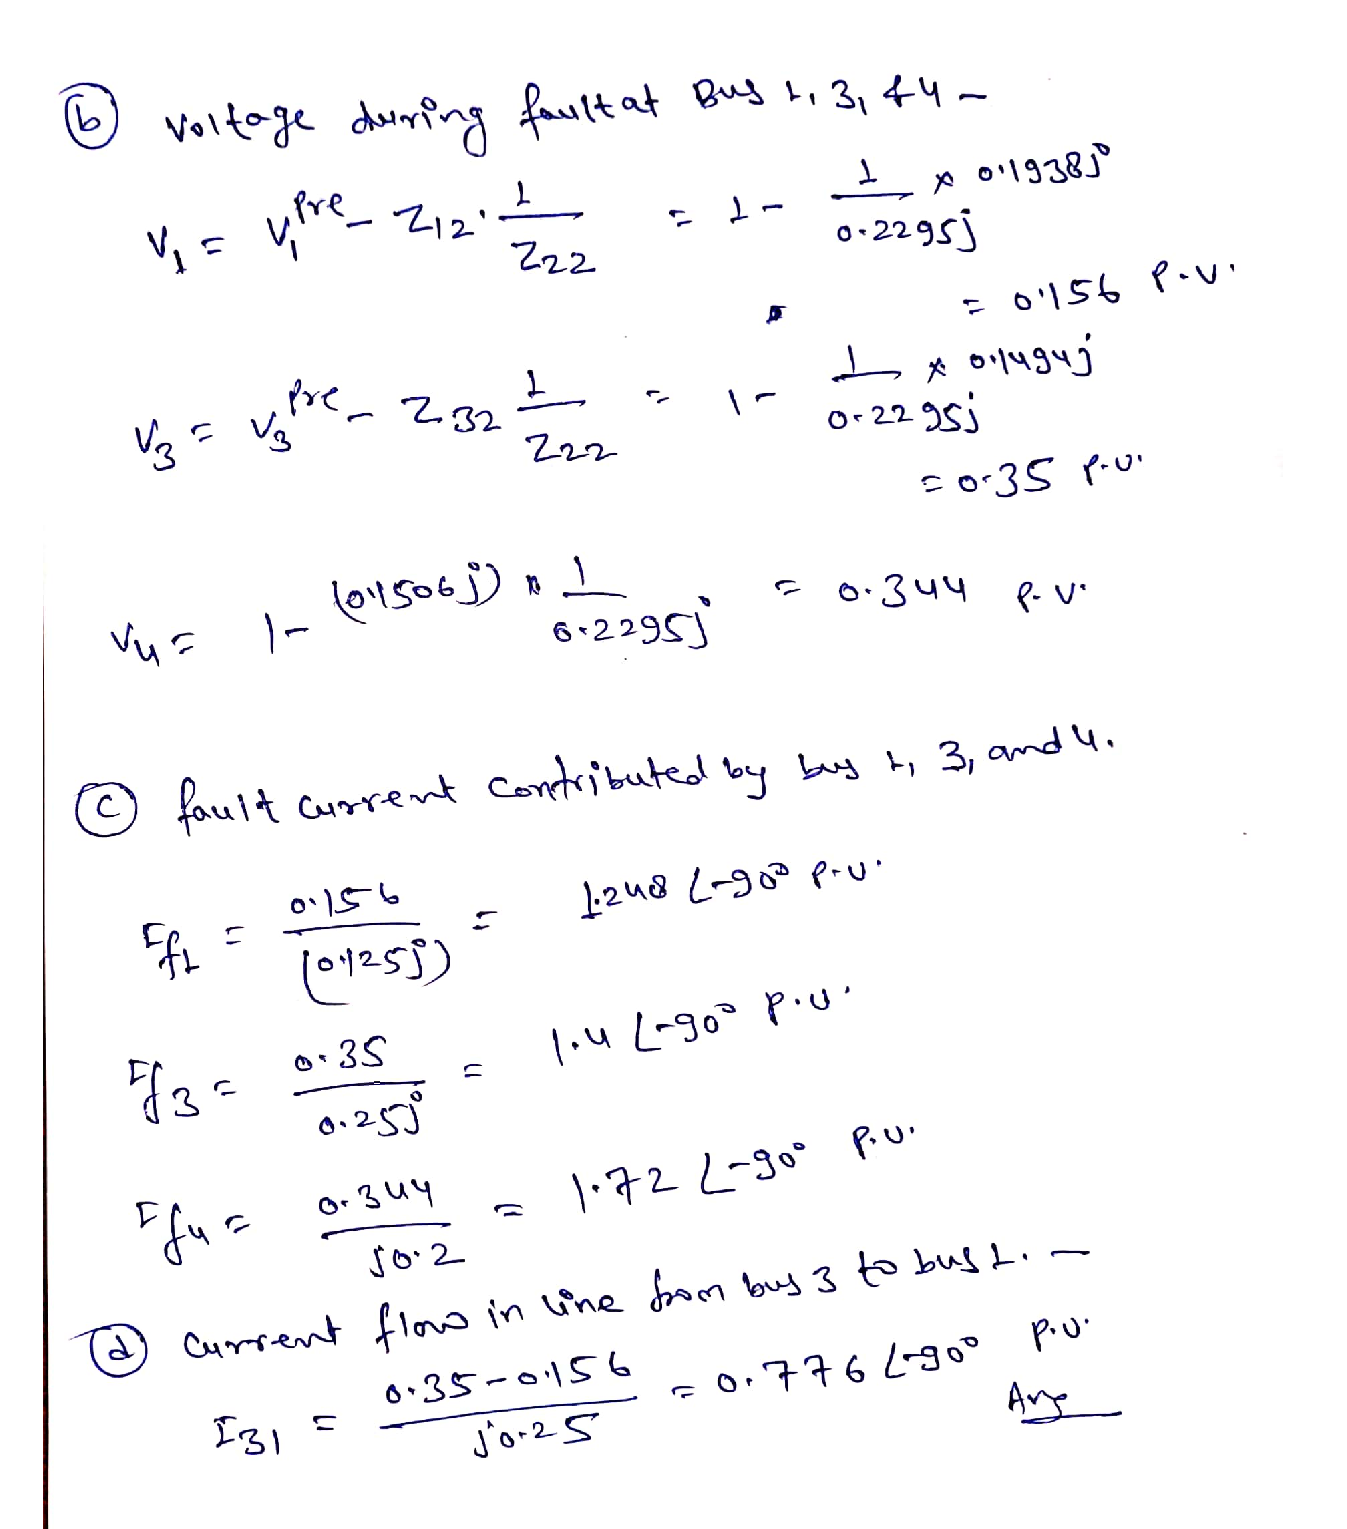 (b) Voltage during fault at Bus 1, 3, & 4 -
V1 = V1^Pre - Z12 · 1/Z22 = 1 - 1/0.2295j × 0.1938j
= 0.156 P.U.
V3 = V3^Pre - Z32 1/Z22 = 1 - 1/0.2295j × 0.1494j
= 0.35 P.U.
V4 = 1 - (0.1506j) × 1/0.2295j = 0.344 P.U.
(c) fault current contributed by bus 1, 3, and 4.
If1 = 0.156/(0.125j) = 1.248 ∠-90° P.U.
If3 = 0.35/0.25j = 1.4 ∠-90° P.U.
If4 = 0.344/j0.2 = 1.72 ∠-90° P.U.
(d) Current flow in line from bus 3 to bus 1. -
I31 = 0.35-0.156/j0.25 = 0.776 ∠-90° P.U.
Ans